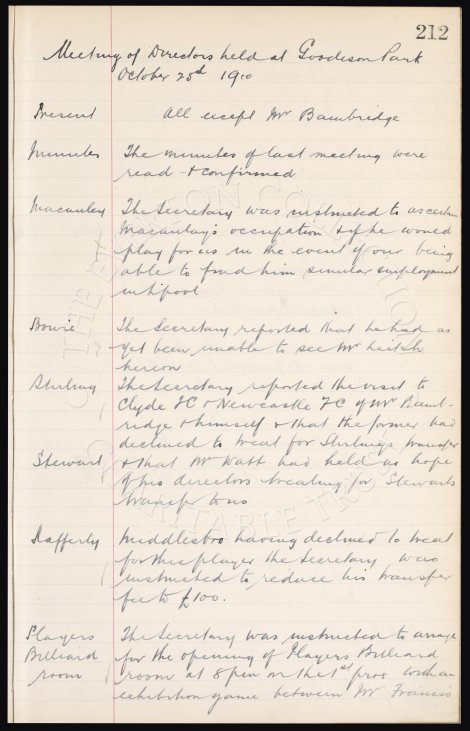 212
Meeting of Directors held at Goodison Park
October 25d 1910
Present All except Mr Bainbridge
Minutes The minutes of last meeting were
read & confirmed
Macauley The Secretary was instructed to ascertain
Macaulay's occupation & if he would
play for us in the event of our being
able to find him similar employment
in Lpool
Bowie The Secretary reported that he had as
yet been unable to see Mr Leitch
hereon
Stirling The Secretary reported the visit to
Clyde FC & Newcastle FC of Mr Bainb-
ridge & himself & that the former had
declined to treat for Stirlings transfer
Stewart & that Mr Watt had held no hope
of his directors treating for Stewarts
transfer to us
Rafferty Middlesbro having declined to treat
for this player the Secretary was
instructed to reduce his transfer
fee to £100.
Players The Secretary was instructed to arrange
Billiard for the opening of Players Billiard
room room at 8pm on the 1st prox with an
exhibition game between Mr Francis